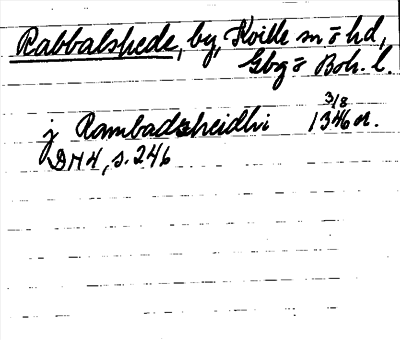 Rabbalshede, by, Kville sn o hd,
Gbg o Boh. l.
j Rambadsheidhi 1346 3/8 or.
DN 4, s. 246